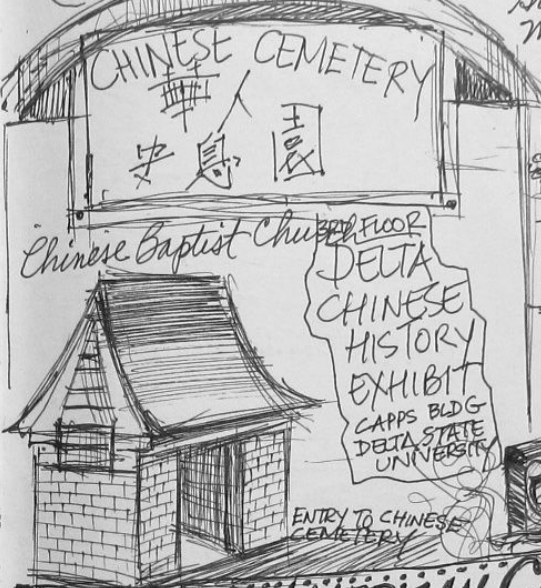 CHINESE CEMETERY
華人
安息園
Chinese Baptist Church
3RD FLOOR
DELTA
CHINESE
HISTORY
EXHIBIT
CAPPS BLDG
DELTA STATE
UNIVERSITY
ENTRY TO CHINESE
CEMETERY